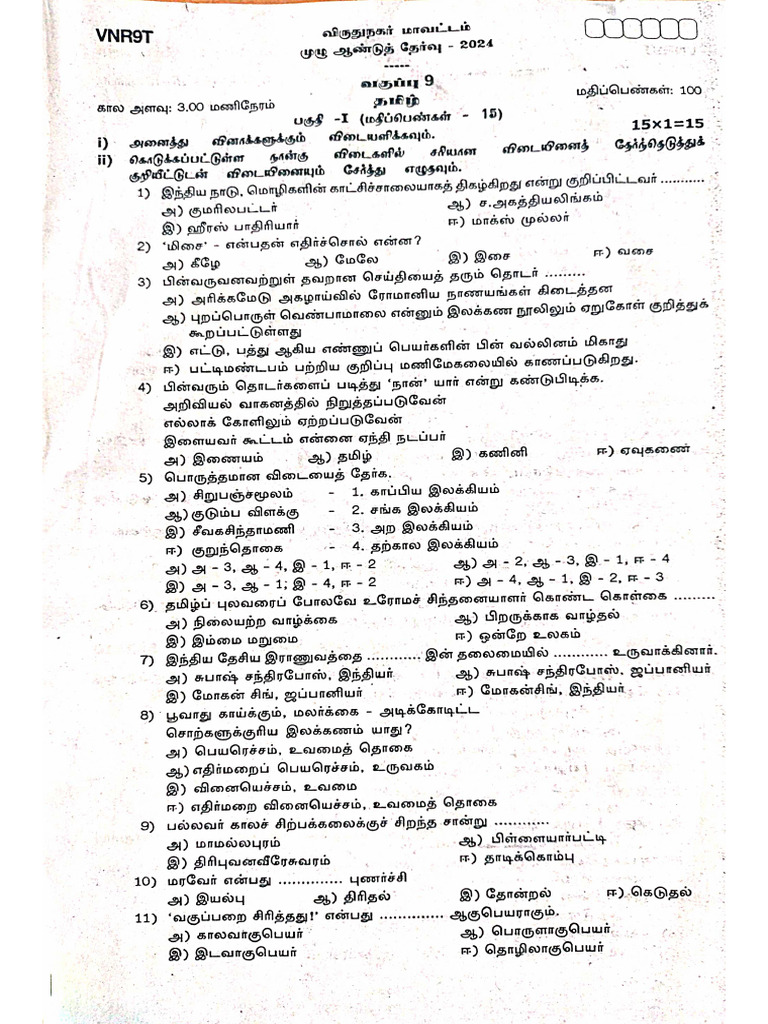 VNR9T
விருதுநகர் மாவட்டம்
முழு ஆண்டுத் தேர்வு - 2024
-----
வகுப்பு 9
கால அளவு: 3.00 மணிநேரம்
தமிழ்
மதிப்பெண்கள்: 100
பகுதி -I (மதிப்பெண்கள் - 15)
15×1=15
i) அனைத்து வினாக்களுக்கும் விடையளிக்கவும்.
ii) கொடுக்கப்பட்டுள்ள நான்கு விடைகளில் சரியான விடையினைத் தேர்ந்தெடுத்துக்
குறியீட்டுடன் விடையினையும் சேர்த்து எழுதவும்.
1) இந்திய நாடு, மொழிகளின் காட்சிச்சாலையாகத் திகழ்கிறது என்று குறிப்பிட்டவர் ...........
அ) குமரிலபட்டர் ஆ) ச.அகத்தியலிங்கம்
இ) ஹீரஸ் பாதிரியார் ஈ) மாக்ஸ் முல்லர்
2) 'மிசை' - என்பதன் எதிர்ச்சொல் என்ன?
அ) கீழே ஆ) மேலே இ) இசை ஈ) வசை
3) பின்வருவனவற்றுள் தவறான செய்தியைத் தரும் தொடர் .........
அ) அரிக்கமேடு அகழாய்வில் ரோமானிய நாணயங்கள் கிடைத்தன
ஆ) புறப்பொருள் வெண்பாமாலை என்னும் இலக்கண நூலிலும் ஏறுகோள் குறித்துக்
கூறப்பட்டுள்ளது
இ) எட்டு, பத்து ஆகிய எண்ணுப் பெயர்களின் பின் வல்லினம் மிகாது
ஈ) பட்டிமண்டபம் பற்றிய குறிப்பு மணிமேகலையில் காணப்படுகிறது.
4) பின்வரும் தொடர்களைப் படித்து 'நான்' யார் என்று கண்டுபிடிக்க.
அறிவியல் வாகனத்தில் நிறுத்தப்படுவேன்
எல்லாக் கோளிலும் ஏற்றப்படுவேன்
இளையவர் கூட்டம் என்னை ஏந்தி நடப்பர்
அ) இணையம் ஆ) தமிழ் இ) கணினி ஈ) ஏவுகணை
5) பொருத்தமான விடையைத் தேர்க.
அ) சிறுபஞ்சமூலம் - 1. காப்பிய இலக்கியம்
ஆ) குடும்ப விளக்கு - 2. சங்க இலக்கியம்
இ) சீவகசிந்தாமணி - 3. அற இலக்கியம்
ஈ) குறுந்தொகை - 4. தற்கால இலக்கியம்
அ) அ - 3, ஆ - 4, இ - 1, ஈ - 2 ஆ) அ - 2, ஆ - 3, இ - 1, ஈ - 4
இ) அ - 3, ஆ - 1; இ - 4, ஈ - 2 ஈ) அ - 4, ஆ - 1, இ - 2, ஈ - 3
6) தமிழ்ப் புலவரைப் போலவே உரோமச் சிந்தனையாளர் கொண்ட கொள்கை .........
அ) நிலையற்ற வாழ்க்கை ஆ) பிறருக்காக வாழ்தல்
இ) இம்மை மறுமை ஈ) ஒன்றே உலகம்
7) இந்திய தேசிய இராணுவத்தை ............ இன் தலைமையில் ............ உருவாக்கினார்.
அ) சுபாஷ் சந்திரபோஸ், இந்தியர் ஆ) சுபாஷ் சந்திரபோஸ், ஜப்பானியர்
இ) மோகன் சிங், ஜப்பானியர் ஈ) மோகன்சிங், இந்தியர்
8) பூவாது காய்க்கும், மலர்க்கை - அடிக்கோடிட்ட
சொற்களுக்குரிய இலக்கணம் யாது?
அ) பெயரெச்சம், உவமைத் தொகை
ஆ) எதிர்மறைப் பெயரெச்சம், உருவகம்
இ) வினையெச்சம், உவமை
ஈ) எதிர்மறை வினையெச்சம், உவமைத் தொகை
9) பல்லவர் காலச் சிற்பக்கலைக்குச் சிறந்த சான்று ............
அ) மாமல்லபுரம் ஆ) பிள்ளையார்பட்டி
இ) திரிபுவனவீரேசுவரம் ஈ) தாடிக்கொம்பு
10) மரவேர் என்பது .............. புணர்ச்சி
அ) இயல்பு ஆ) திரிதல் இ) தோன்றல் ஈ) கெடுதல்
11) 'வகுப்பறை சிரித்தது!' என்பது .............. ஆகுபெயராகும்.
அ) காலவாகுபெயர் ஆ) பொருளாகுபெயர்
இ) இடவாகுபெயர் ஈ) தொழிலாகுபெயர்